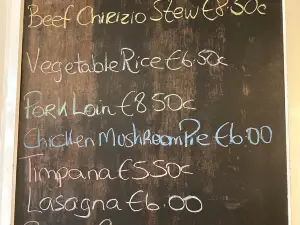 Beef Chirizio Stew €8.50c
Vegetable Rice €6.50c
Pork Loin €8.50c
Chicken Mushroom Pie €6.00
Timpana €5.50c
Lasagna €6.00